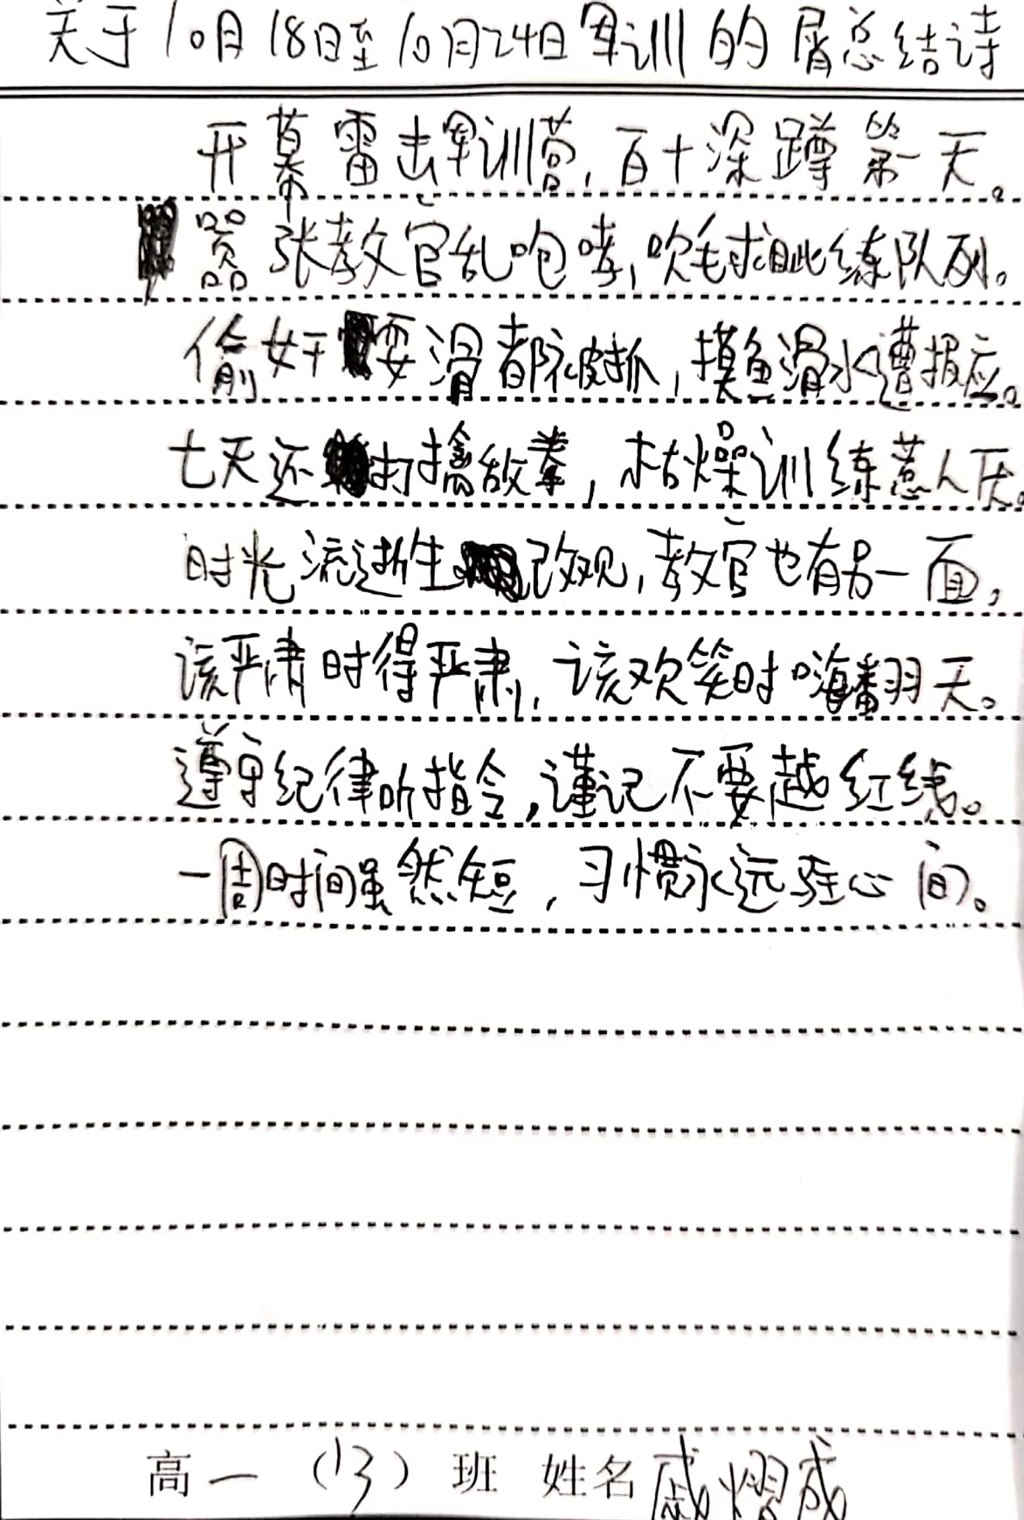 关于10月18日至10月24日军训的屑总结诗
开幕雷击军训营,百十深蹲第一天。
嚣张教官乱咆哮,吹毛求疵练队列。
偷奸耍滑都被抓,摸鱼滑水遭报应。
七天还打擒敌拳,枯燥训练惹人厌。
时光流逝生改观,教官也有另一面,
该严肃时得严肃,该欢笑时嗨翻天。
遵守纪律听指令,谨记不要越红线。
一周时间虽然短,习惯永远驻心间。
高一(13)班 姓名戚熠成